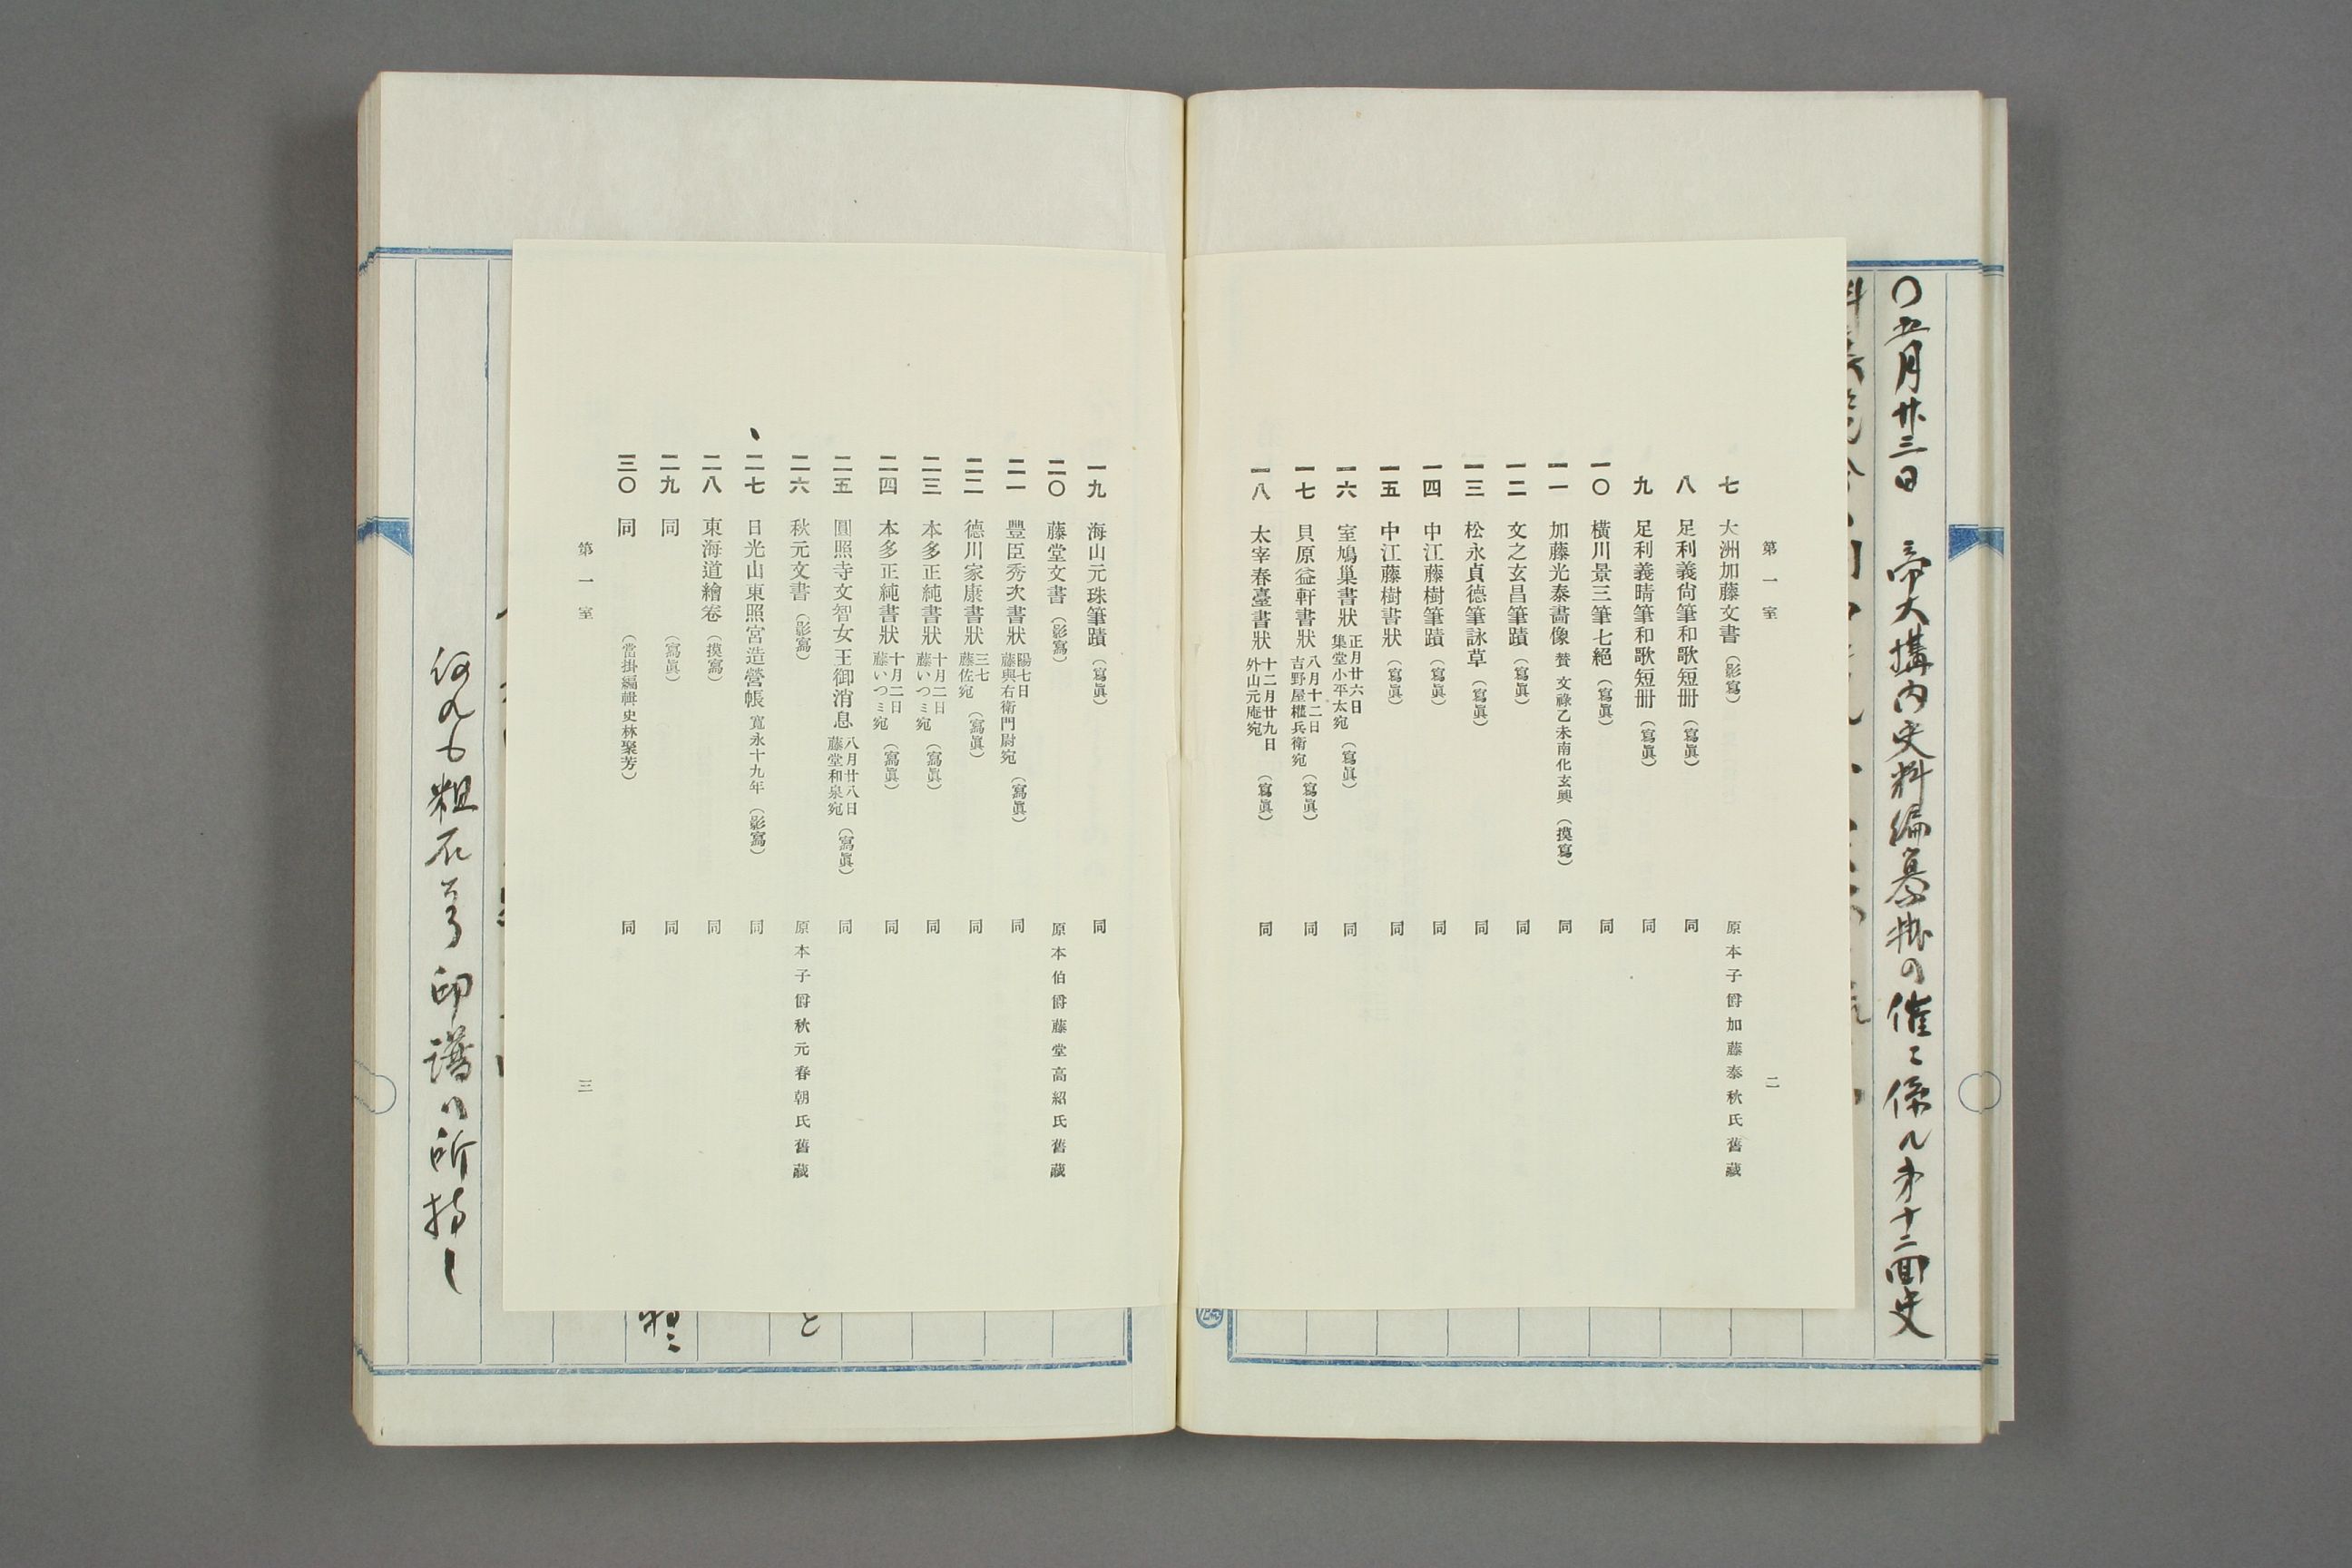 〇五月廿三日 帝大構内史料編纂掛の催ニ係ル第十二回史
第一室
二
七 大洲加藤文書(影寫) 原本子爵加藤泰秋氏舊藏
八 足利義尙筆和歌短冊(寫眞) 同
九 足利義晴筆和歌短冊(寫眞) 同
一〇 橫川景三筆七絕(寫眞) 同
一一 加藤光泰畵像 賛 文祿乙未南化玄興(摸寫) 同
一二 文之玄昌筆蹟(寫眞) 同
一三 松永貞德筆詠草(寫眞) 同
一四 中江藤樹筆蹟(寫眞) 同
一五 中江藤樹書狀(寫眞) 同
一六 室鳩巢書狀 正月廿六日 集堂小平太宛(寫眞) 同
一七 貝原益軒書狀 八月十二日 吉野屋權兵衛宛(寫眞) 同
一八 太宰春臺書狀 十二月廿九日 外山元庵宛(寫眞) 同
一九 海山元珠筆蹟(寫眞) 同
二〇 藤堂文書(影寫) 原本伯爵藤堂高紹氏舊藏
二一 豐臣秀次書狀 陽七日 藤與右衛門尉宛(寫眞) 同
二二 德川家康書狀 三七 藤佐宛(寫眞) 同
二三 本多正純書狀 十月二日 藤いつミ宛(寫眞) 同
二四 本多正純書狀 十月二日 藤いつミ宛(寫眞) 同
二五 圓照寺文智女王御消息 八月廿八日 藤堂和泉宛(寫眞) 同
二六 秋元文書(影寫) 原本子爵秋元春朝氏舊藏
二七 日光山東照宮造營帳 寬永十九年(影寫) 同
二八 東海道繪卷(摸寫) 同
二九 同(寫眞) 同
三〇 同(當掛編輯史林聚芳) 同
第一室
三
と
何れも粗石、印譜ハ所持し